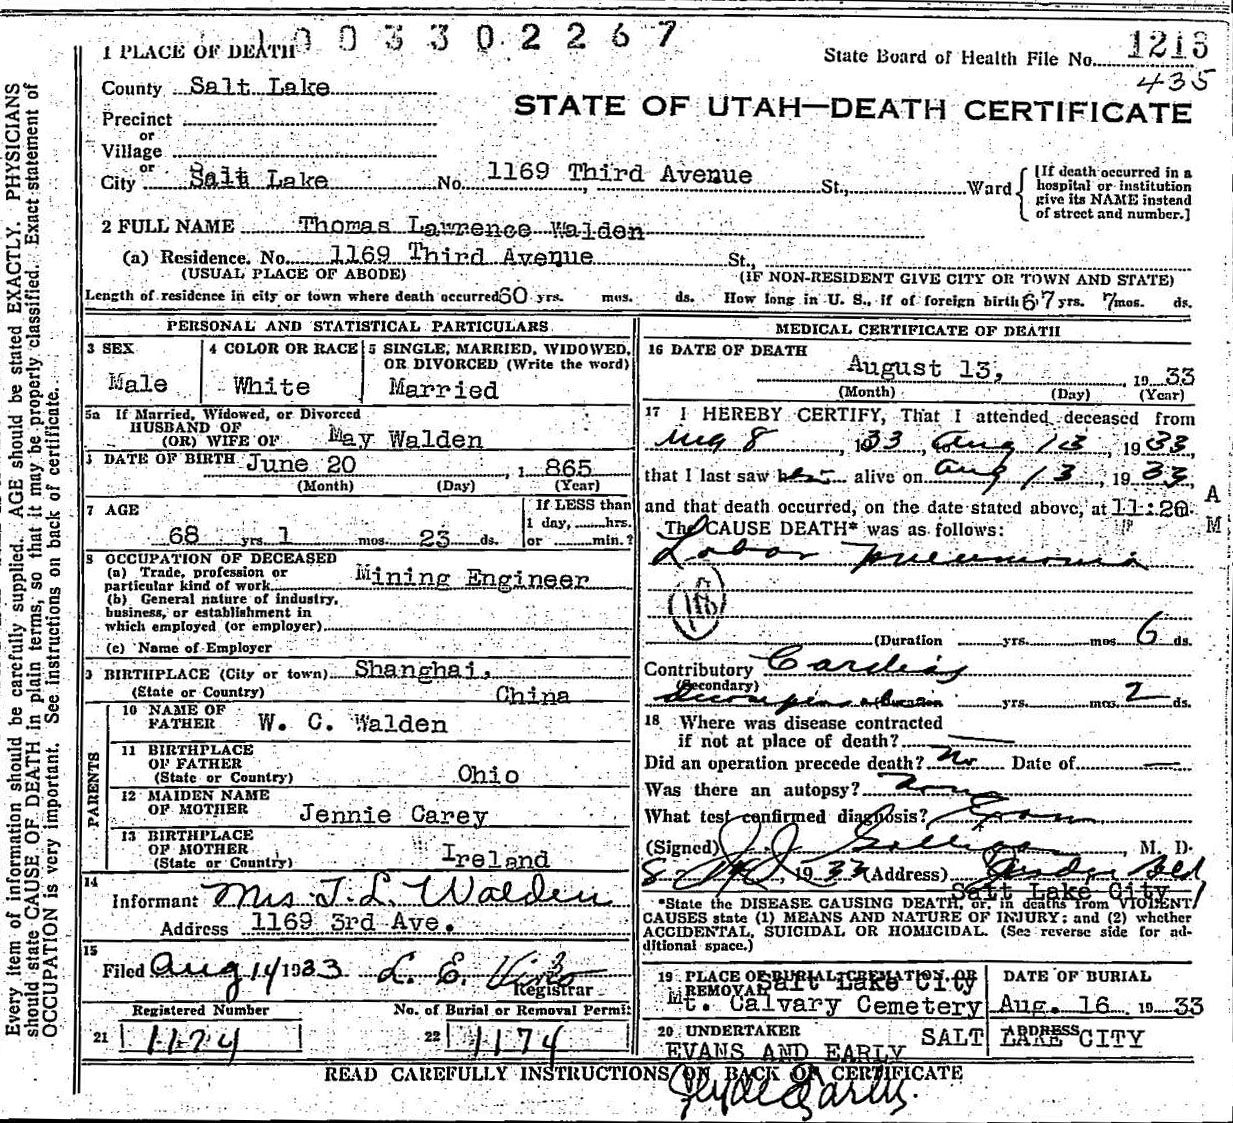 1 0 0 3 3 0 2 2 6 7
1 PLACE OF DEATH
State Board of Health File No. 1213
435
County Salt Lake
STATE OF UTAH—DEATH CERTIFICATE
Precinct
or
Village
or
City Salt Lake No. 1169 Third Avenue St., Ward
[If death occurred in a
hospital or institution
give its NAME instead
of street and number.]
2 FULL NAME Thomas Lawrence Walden
(a) Residence. No. 1169 Third Avenue St.,
(USUAL PLACE OF ABODE) (IF NON-RESIDENT GIVE CITY OR TOWN AND STATE)
Length of residence in city or town where death occurred 50 yrs. mos. ds. How long in U. S., if of foreign birth 67 yrs. 7 mos. ds.
PERSONAL AND STATISTICAL PARTICULARS
3 SEX
Male
4 COLOR OR RACE
White
5 SINGLE, MARRIED, WIDOWED,
OR DIVORCED (Write the word)
Married
5a If Married, Widowed, or Divorced
HUSBAND OF
(OR) WIFE OF May Walden
DATE OF BIRTH June 20, 1865
(Month) (Day) (Year)
7 AGE
68 yrs. 1 mos. 23 ds.
If LESS than
1 day, hrs.
or min.?
8 OCCUPATION OF DECEASED
(a) Trade, profession or
particular kind of work Mining Engineer
(b) General nature of industry,
business, or establishment in
which employed (or employer)
(c) Name of Employer
9 BIRTHPLACE (City or town) Shanghai,
(State or Country) China
PARENTS
10 NAME OF
FATHER W. C. Walden
11 BIRTHPLACE
OF FATHER
(State or Country) Ohio
12 MAIDEN NAME
OF MOTHER Jennie Carey
13 BIRTHPLACE
OF MOTHER
(State or Country) Ireland
14
Informant Mrs T. L. Walden
Address 1169 3rd Ave.
15
Filed Aug 14 1933 L. E.
Registrar
Registered Number
21 1174
No. of Burial or Removal Permit
22 1174
MEDICAL CERTIFICATE OF DEATH
16 DATE OF DEATH
August 13, 1933
(Month) (Day) (Year)
17 I HEREBY CERTIFY, That I attended deceased from
Aug 8, 1933, to Aug 13, 1933
that I last saw h alive on Aug 13, 1933
and that death occurred, on the date stated above, at 11:20 A M
The CAUSE DEATH* was as follows:
Lobar Pneumonia
(Duration yrs. mos. 6 ds.
Contributory Cardiac
(Secondary) (Duration yrs. mos. 2 ds.
18 Where was disease contracted
if not at place of death?
Did an operation precede death? No Date of —
Was there an autopsy?
What test confirmed diagnosis?
(Signed) , M. D.
8- , 1933 (Address)
Salt Lake City
*State the DISEASE CAUSING DEATH, or, in deaths from VIOLENT
CAUSES state (1) MEANS AND NATURE OF INJURY; and (2) whether
ACCIDENTAL, SUICIDAL OR HOMICIDAL. (See reverse side for ad-
ditional space.)
19 PLACE OF BURIAL, CREMATION OR
REMOVAL Salt Lake City
Mt. Calvary Cemetery
DATE OF BURIAL
Aug. 16 1933
20 UNDERTAKER
EVANS AND EARLY
ADDRESS
SALT LAKE CITY
READ CAREFULLY INSTRUCTIONS ON BACK OF CERTIFICATE
Every item of information should be carefully supplied. AGE should be stated EXACTLY. PHYSICIANS
should state CAUSE OF DEATH in plain terms, so that it may be properly classified. Exact statement of
OCCUPATION is very important. See instructions on back of certificate.